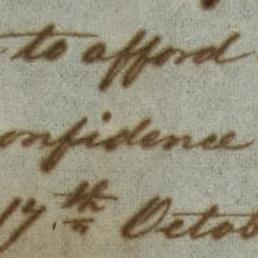 to afford
onfidence
17th Octob